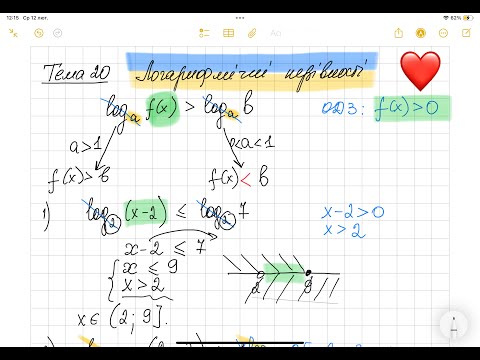 12:15 Ср 12 лют.
62%
Aa
Тема 20 Логарифмічні нерівності
logₐ f(x) > logₐ b
ОДЗ: f(x) > 0
a>1
0<a<1
f(x) > b
f(x) < b
1) log₂ (x-2) ≤ log₂ 7
x-2>0
x>2
x-2 ≤ 7
x ≤ 9
x > 2
2 9
x ∈ (2; 9].